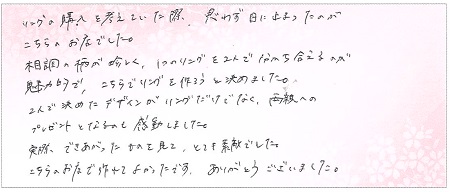 リングの購入を考えていた際、思わず目に止まったのが
こちらのお店でした。
木目調の柄が珍しく、1つのリングを2人で分かち合えるのが
魅力的で、こちらでリングを作ろうと決めました。
2人で決めたデザインがリングだけでなく、両親への
プレゼントとなるのも感動しました。
実際、できあがったものを見て、とても素敵でした。
こちらのお店で作れてよかったです。ありがとうございました。